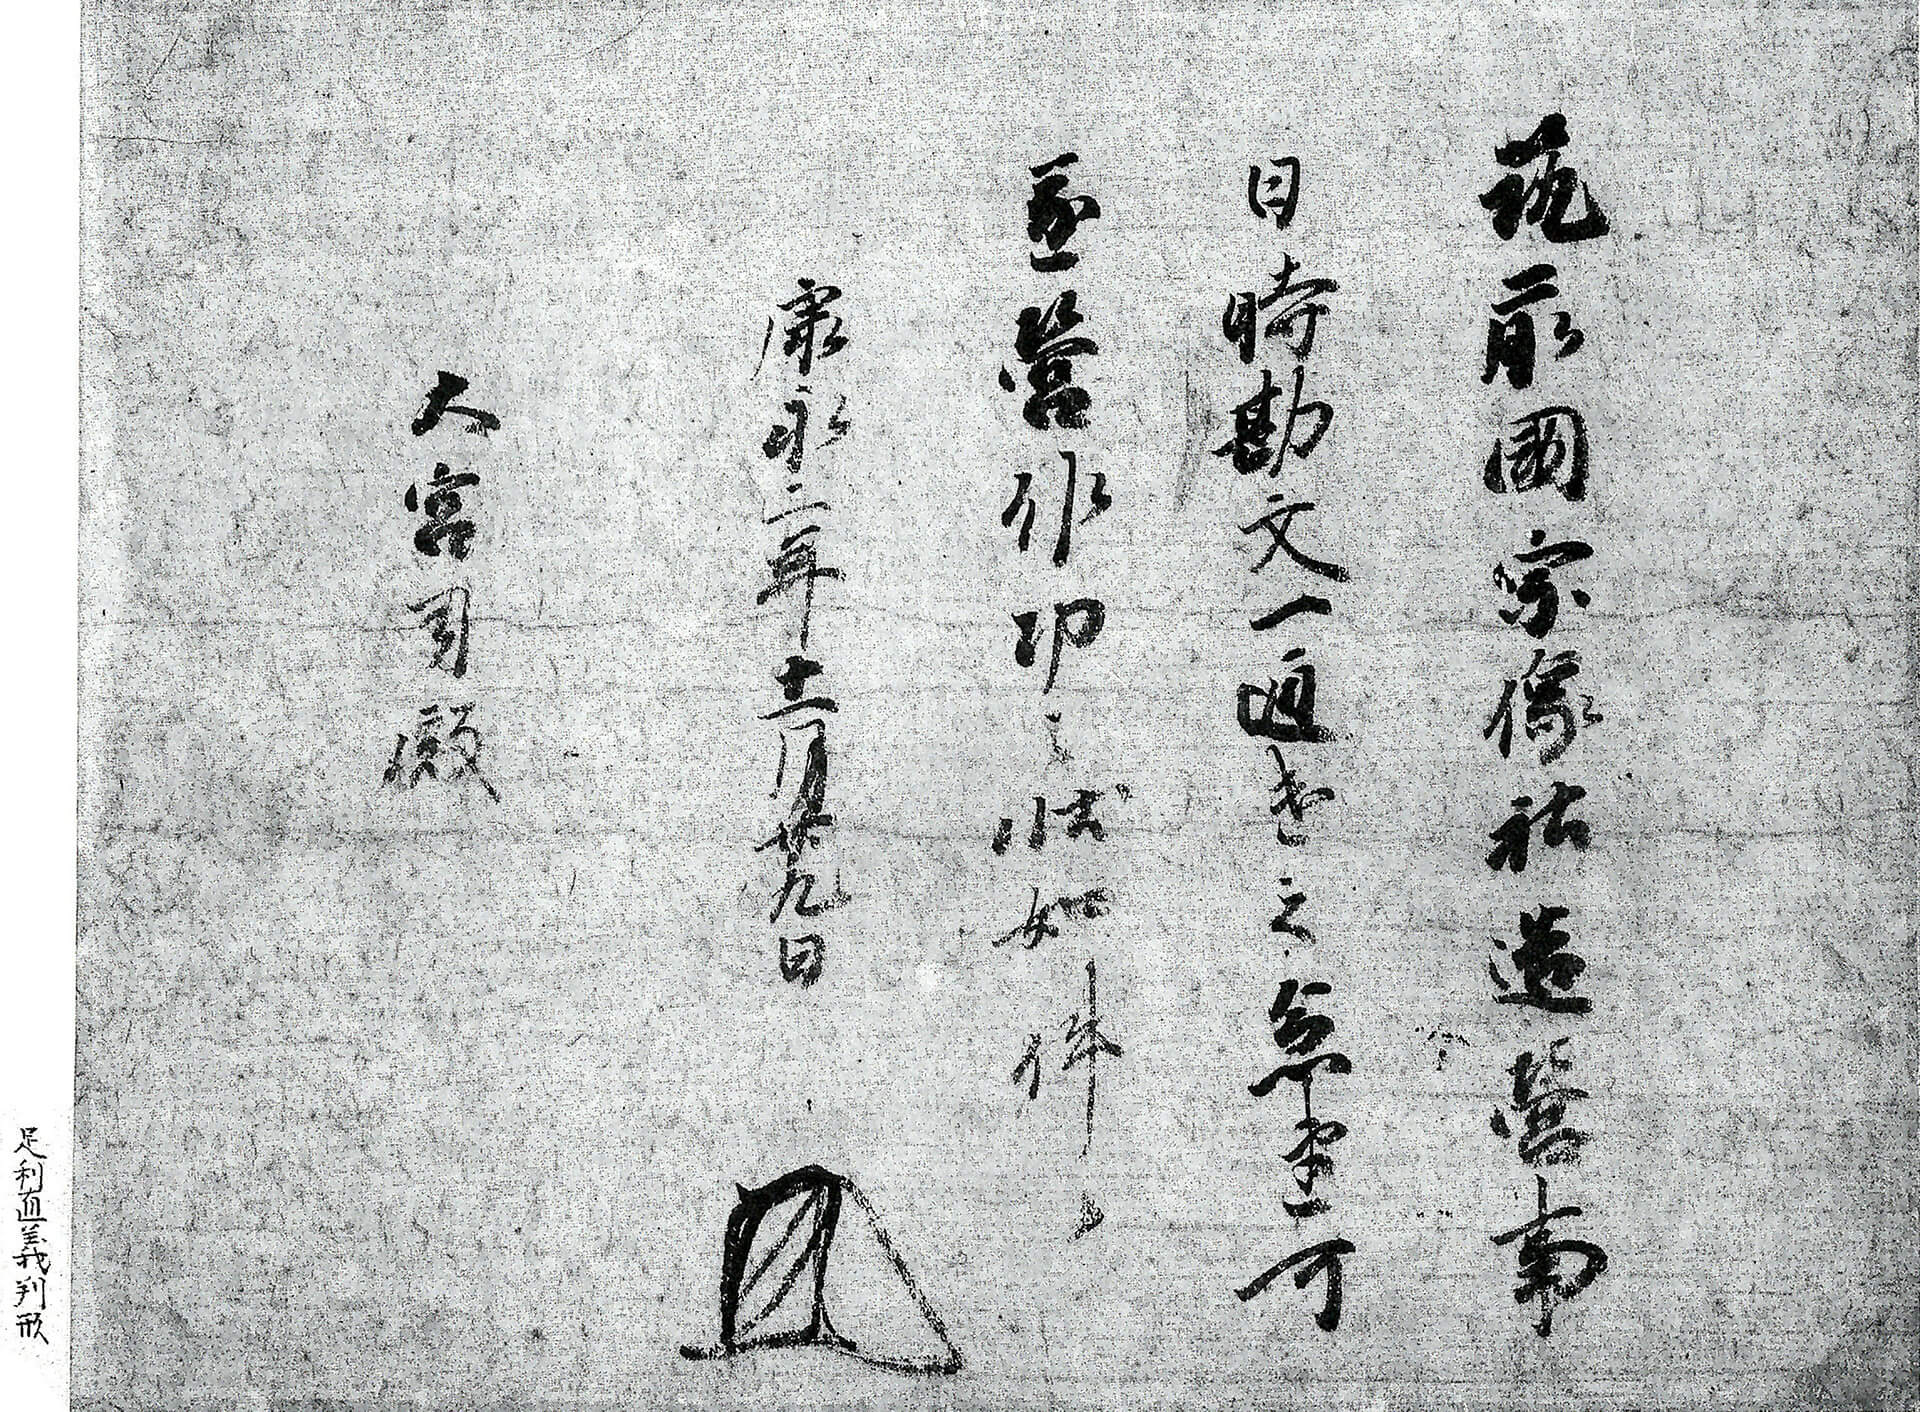 筑前國宗像社造營事
日時勘文一通遣之忩速可
遂營作功之状如件
康永二年十一月廿九日
大宮司殿
足利直義判形